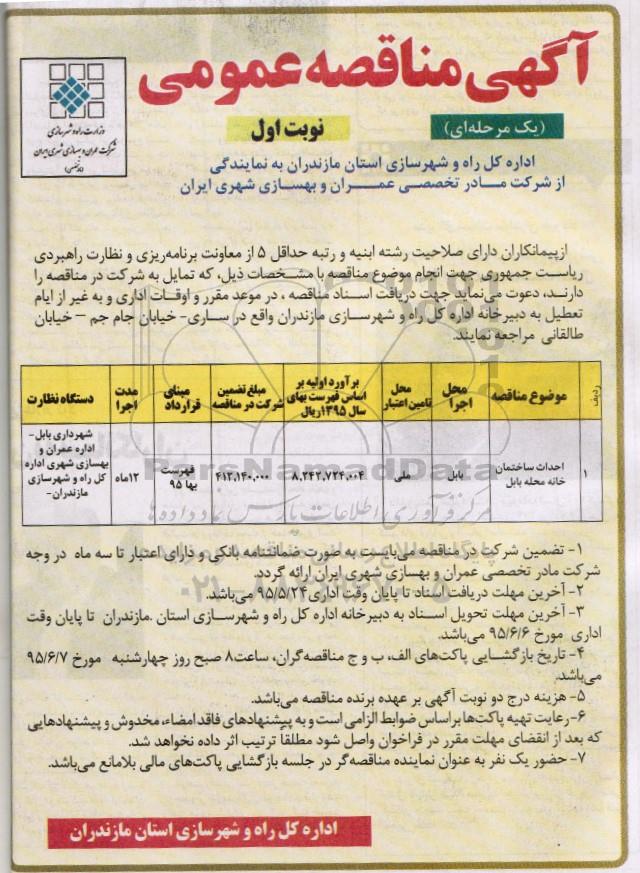 آگهی مناقصه عمومی
(یک مرحله‌ای)
نوبت اول
وزارت راه و شهرسازی
شرکت عمران و بهسازی شهری ایران
اداره کل راه و شهرسازی استان مازندران به نمایندگی
از شرکت مادر تخصصی عمران و بهسازی شهری ایران
ازپیمانکاران دارای صلاحیت رشته ابنیه و رتبه حداقل ۵ از معاونت برنامه‌ریزی و نظارت راهبردی
ریاست جمهوری جهت انجام موضوع مناقصه با مشخصات ذیل، که تمایل به شرکت در مناقصه را
دارند، دعوت می‌نماید جهت دریافت اسناد مناقصه ، در موعد مقرر و اوقات اداری و به غیر از ایام
تعطیل به دبیرخانه اداره کل راه و شهرسازی مازندران واقع در ساری- خیابان جام جم – خیابان
طالقانی مراجعه نمایند.
ردیف
موضوع مناقصه
محل اجرا
محل تامین اعتبار
برآورد اولیه بر اساس فهرست بهای سال ۱۳۹۵ریال
مبلغ تضمین شرکت در مناقصه
مبنای قرارداد
مدت اجرا
دستگاه نظارت
۱
احداث ساختمان خانه محله بابل
بابل
ملی
۸,۲۴۲,۷۲۴,۰۰۴
۴۱۳,۱۴۰,۰۰۰
فهرست بها ۹۵
۱۲ماه
شهرداری بابل- اداره عمران و بهسازی شهری اداره کل راه و شهرسازی مازندران-
ParsNamadData
مرکز فرآوری اطلاعات پارس نماد داده ها
۱- تضمین شرکت در مناقصه می‌بایست به صورت ضمانتنامه بانکی و دارای اعتبار تا سه ماه در وجه
شرکت مادر تخصصی عمران و بهسازی شهری ایران ارائه گردد.
۲- آخرین مهلت دریافت اسناد تا پایان وقت اداری۹۵/۵/۲۴ می‌باشد.
۳- آخرین مهلت تحویل اسناد به دبیرخانه اداره کل راه و شهرسازی استان .مازندران تا پایان وقت
اداری مورخ ۹۵/۶/۶ می‌باشد.
۴- تاریخ بازگشایی پاکت‌های الف، ب و ج مناقصه‌گران، ساعت۸ صبح روز چهارشنبه مورخ ۹۵/۶/۷
می‌باشد.
۵- هزینه درج دو نوبت آگهی بر عهده برنده مناقصه می‌باشد.
۶-رعایت تهیه پاکت‌ها براساس ضوابط الزامی است و به پیشنهادهای فاقد امضاء، مخدوش و پیشنهادهایی
که بعد از انقضای مهلت مقرر در فراخوان واصل شود مطلقاً ترتیب اثر داده نخواهد شد.
۷- حضور یک نفر به عنوان نماینده مناقصه‌گر در جلسه بازگشایی پاکت‌های مالی بلامانع می‌باشد.
اداره کل راه و شهرسازی استان مازندران